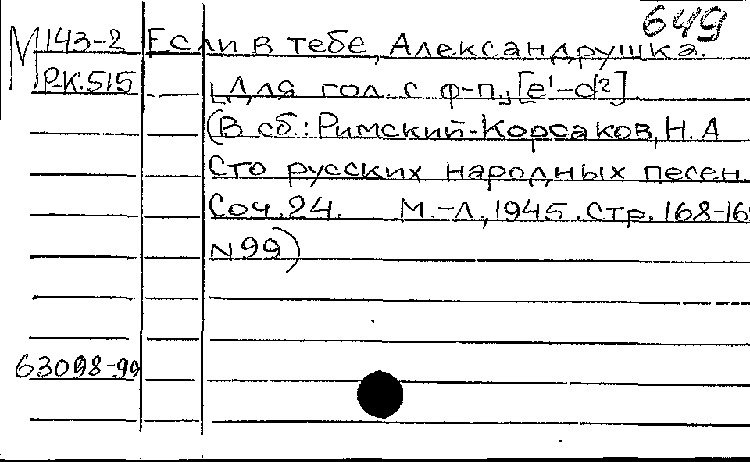 649
М 143-2 Если в тебе, Александрушка.
Р.К.515 [Для гол. с ф-п., [e¹-d²]
(В сб.: Римский-Корсаков, Н.А
Сто русских народных песен.
Соч.24. М.-Л., 1945. Стр. 168-16
N 99)
63098-99